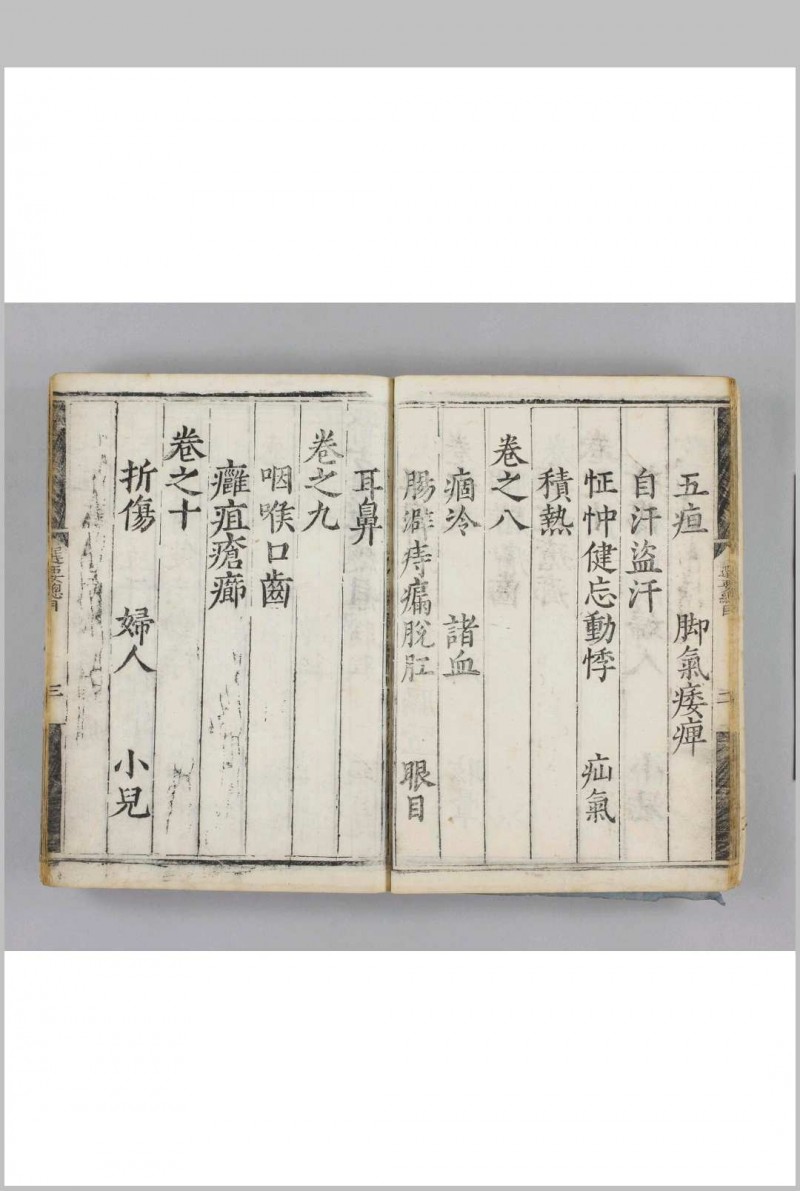 五疸　脚氣痿痺
自汗盜汗
怔忡健忘動悸　疝氣
積熱
卷之八
痼冷　諸血
腸澼痔漏脫肛　眼目
耳鼻
卷之九
咽喉口齒
癰疽瘡癤
卷之十
折傷　婦人　小兒
三